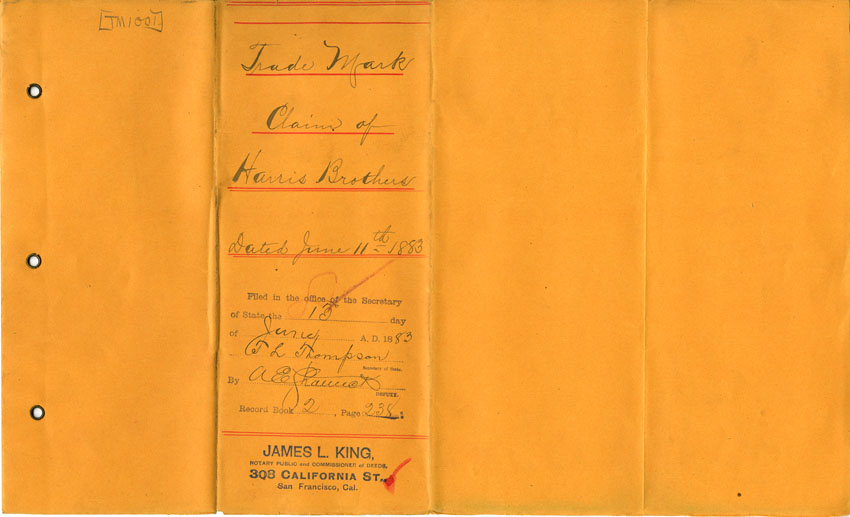 [TM1001]
Trade Mark
Claim of
Harris Brothers
Dated June 11th 1883
Filed in the office of the Secretary
of State the 13 day
of June A. D. 1883
T L Thompson
Secretary of State.
By A E
DEPUTY.
Record Book 2, Page 238:
JAMES L. KING,
NOTARY PUBLIC and COMMISSIONER of DEEDS,
308 CALIFORNIA ST.,
San Francisco, Cal.